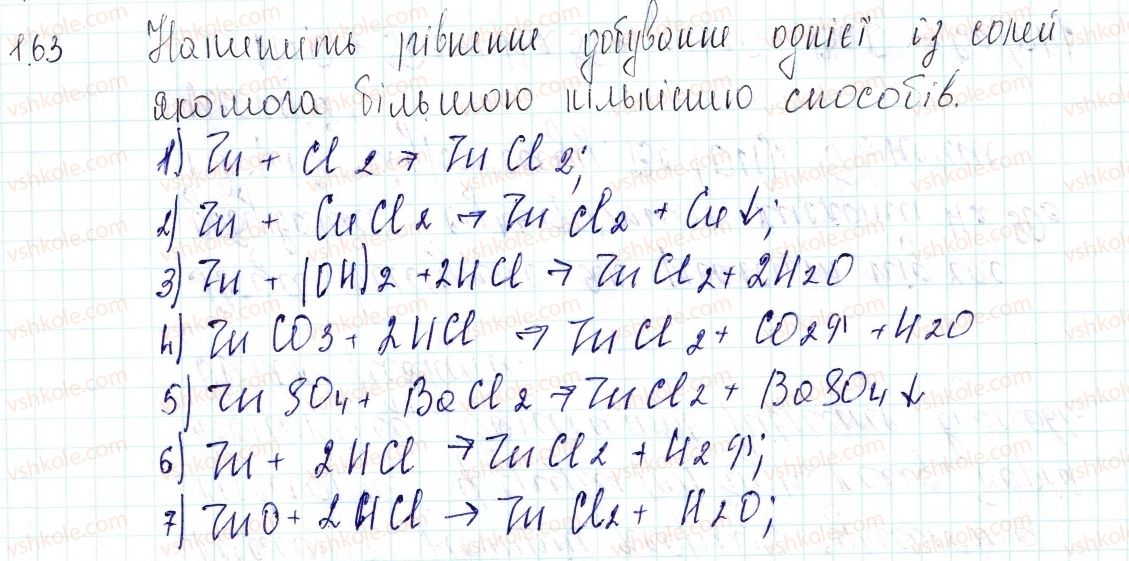 163 Напишіть рівняння добування однієї із солей
якомога більшою кількістю способів.
1) Zn + Cl2 → ZnCl2;
2) Zn + CuCl2 → ZnCl2 + Cu↓;
3) Zn + (OH)2 + 2HCl → ZnCl2 + 2H2O
4) ZnCO3 + 2HCl → ZnCl2 + CO2↑ + H2O
5) ZnSO4 + BaCl2 → ZnCl2 + BaSO4↓
6) Zn + 2HCl → ZnCl2 + H2↑;
7) ZnO + 2HCl → ZnCl2 + H2O;